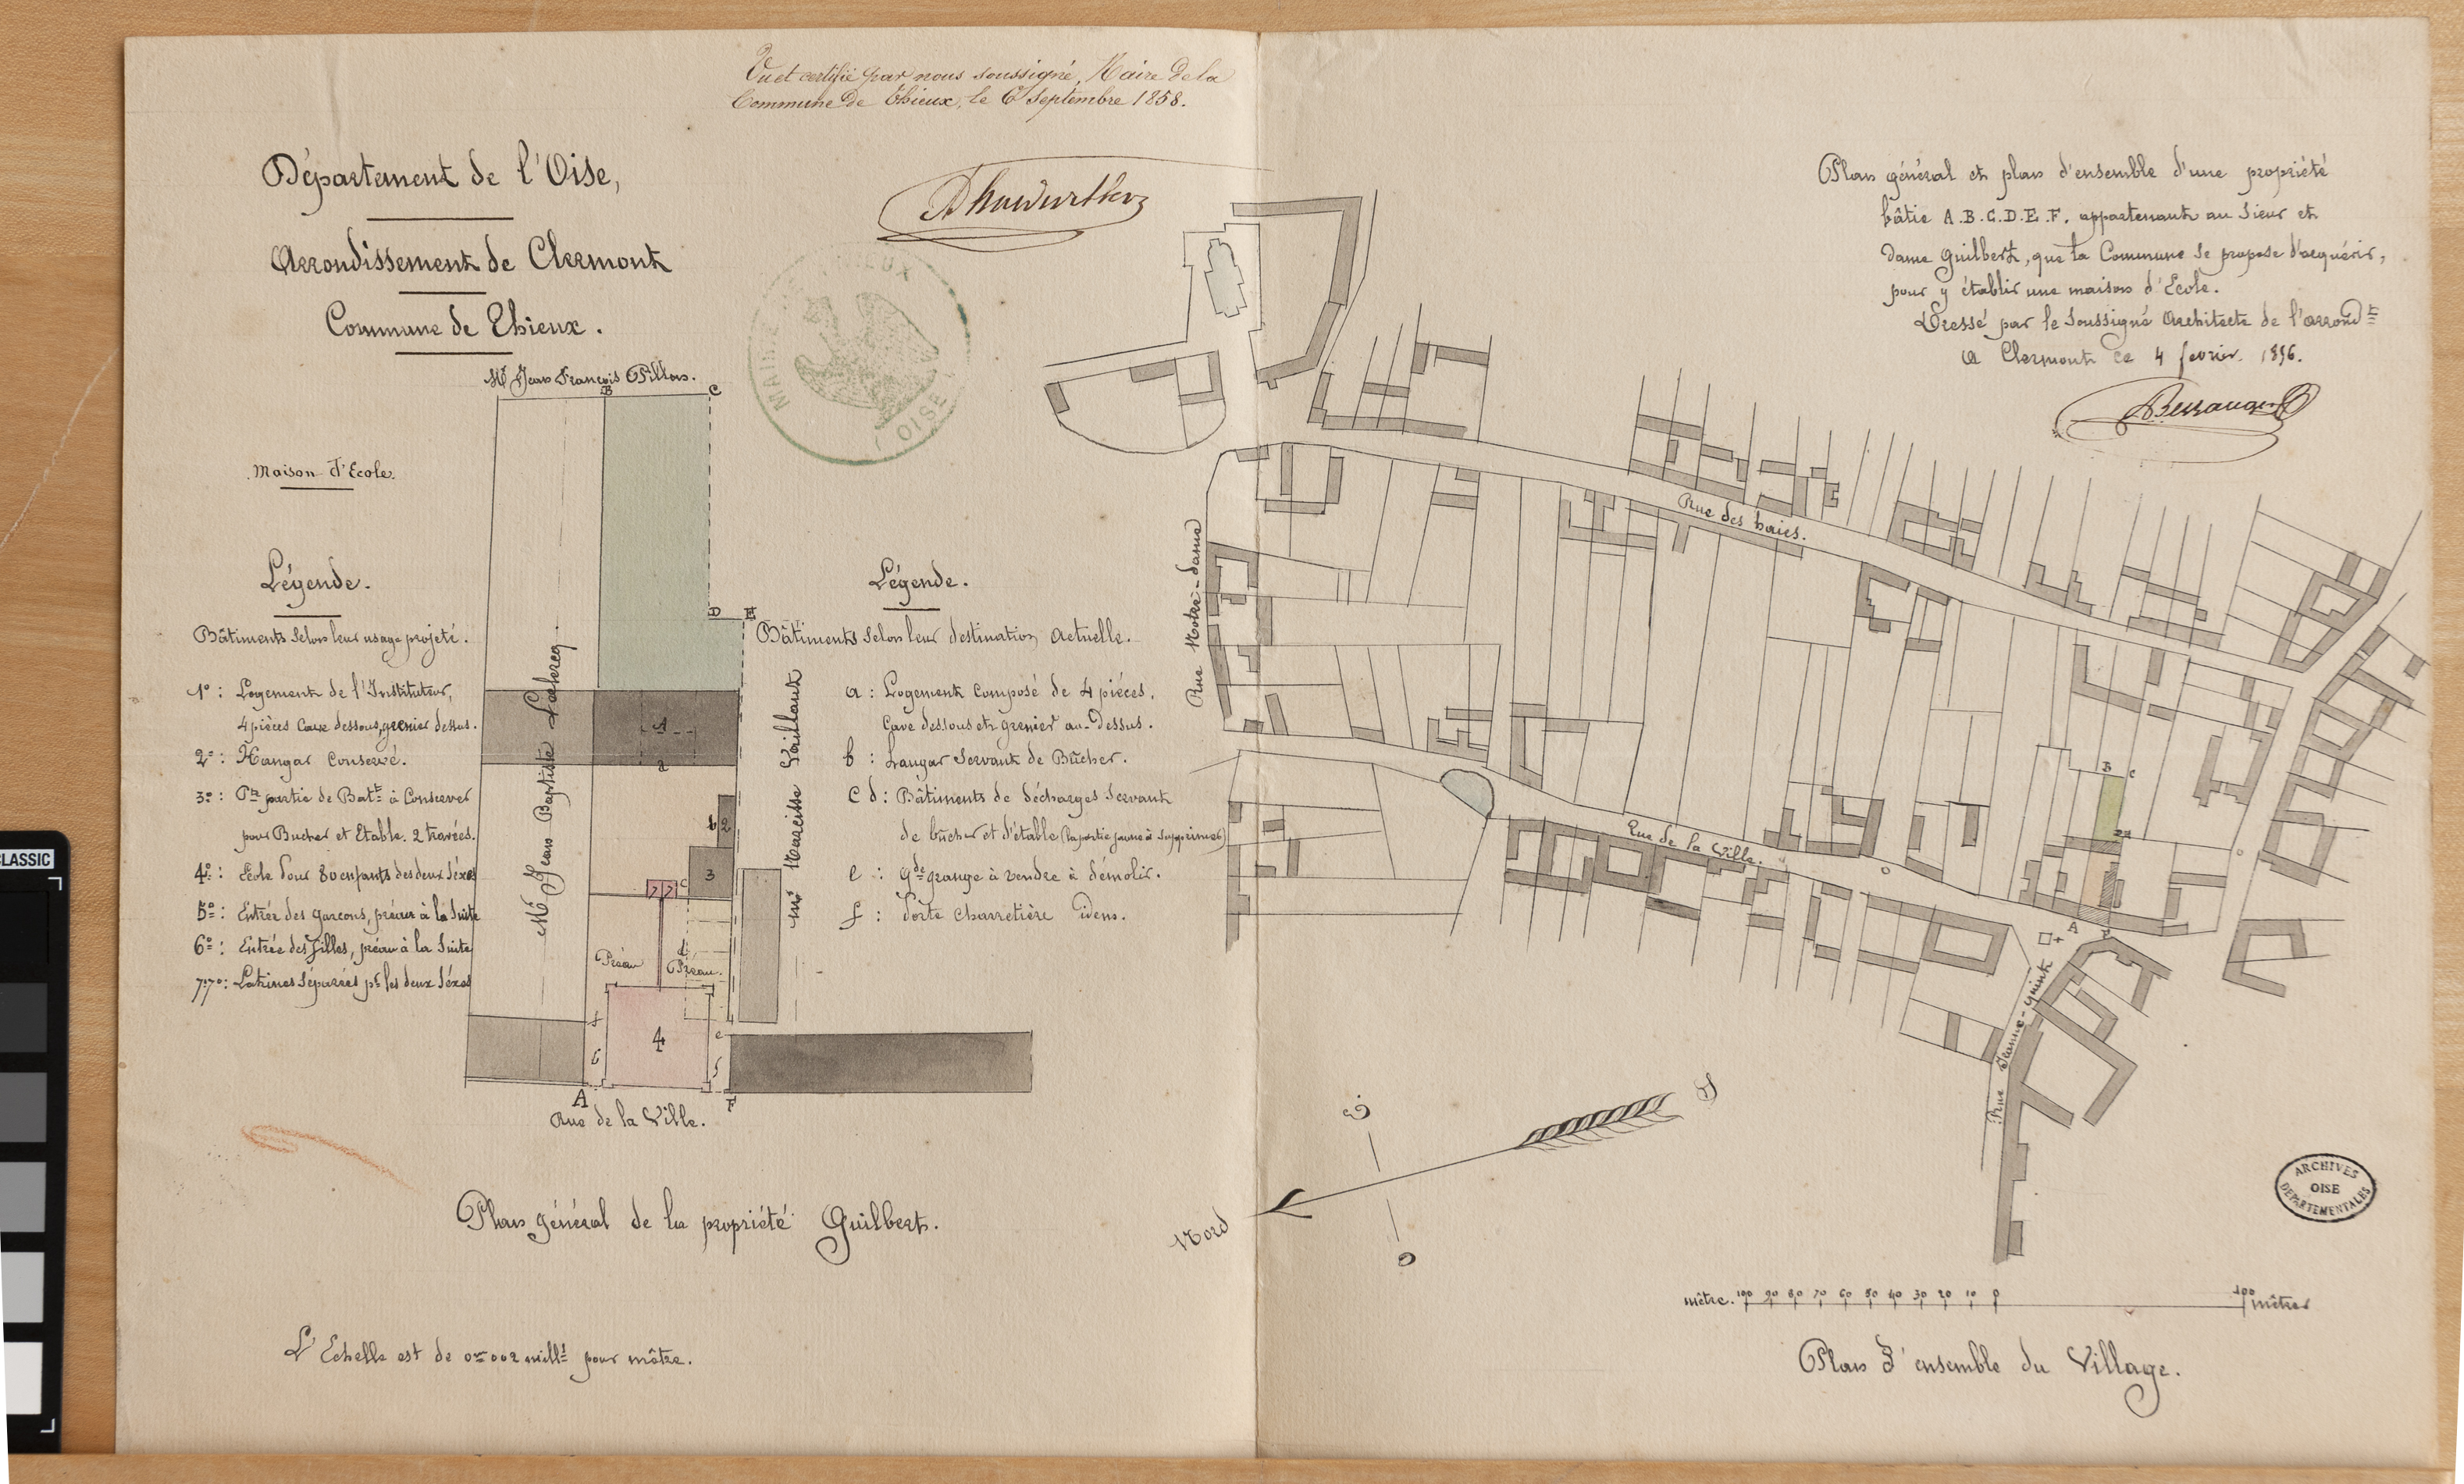 Vu et certifié par nous soussigné, Maire de la
Commune de Thieux, le 6 Septembre 1858.
Département de l'Oise,
Arrondissement de Clermont
Commune de Thieux.
Maison d'Ecole.
MAIRIE DE THIEUX
OISE
Légende.
Bâtiments selon leur usage projeté.
1º : Logement de l'Instituteur,
4 pièces Cave dessous, grenier dessus.
2º : Hangar Conservé.
3º : Ptie partie de Batt à Conserver
pour Bucher et Etable. 2 travées.
4º : Ecole pour 80 enfants des deux Séxes
5º : Entrée des garçons, préau à la Suite
6º : Entrée des filles, préau à la Suite
7.7º : Latrines Séparées pr les deux Séxes
Mr Jean François Pillon.
B
C
D
E
Mr Jean Baptiste Leclercq
Mr Narcisse Vaillant
1
a
b 2
3
7 7 c
d
Préau
Préau.
4
5
6
e
f
A
F
Rue de la Ville.
Légende.
Bâtiments Selon leur destination Actuelle.
a : Logement Composé de 4 pièces,
Cave dessous et grenier au-dessus.
b : hangar Servant de Bûcher.
c d : Bâtiments de décharges Servant
de bûcher et d'étable (la partie jaune à Supprimer)
e : gde grange à vendre à démolir.
f : Porte Charretière idem.
Plan général de la propriété Guilbert.
L'Echelle est de 0m002 millts pour mètre.
Plan général et plan d'ensemble d'une propriété
bâtie A.B.C.D.E.F. appartenant au Sieur et
Dame Guilbert, que la Commune se propose d'acquérir,
pour y établir une maison d'Ecole.
Dressé par le Soussigné Architecte de l'arrondt
A Clermont ce 4 fevrier 1856.
Rue des haies.
Rue Notre-Dame
Rue de la Ville.
Rue Jeanne-
B C
A F
Nord
S
E
O
ARCHIVES
OISE
DEPARTEMENTALES
mètre. 100 90 80 70 60 50 40 30 20 10 0 100 mètres
Plan d'ensemble du Village.